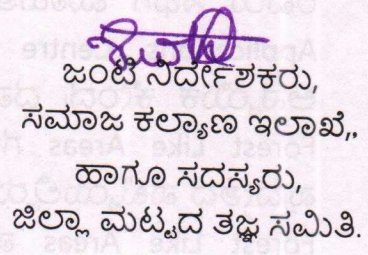 ಜಂಟಿ ನಿರ್ದೇಶಕರು,
ಸಮಾಜ ಕಲ್ಯಾಣ ಇಲಾಖೆ,.
ಹಾಗೂ ಸದಸ್ಯರು,
ಜಿಲ್ಲಾ ಮಟ್ಟದ ತಜ್ಞ ಸಮಿತಿ.